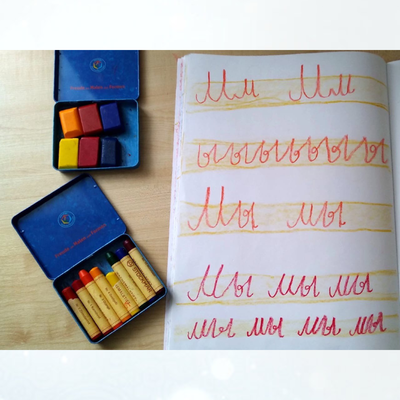 Мм Мм
ыыыыыыыы
Мы мы
Мы мы мы
мы мы мы мы